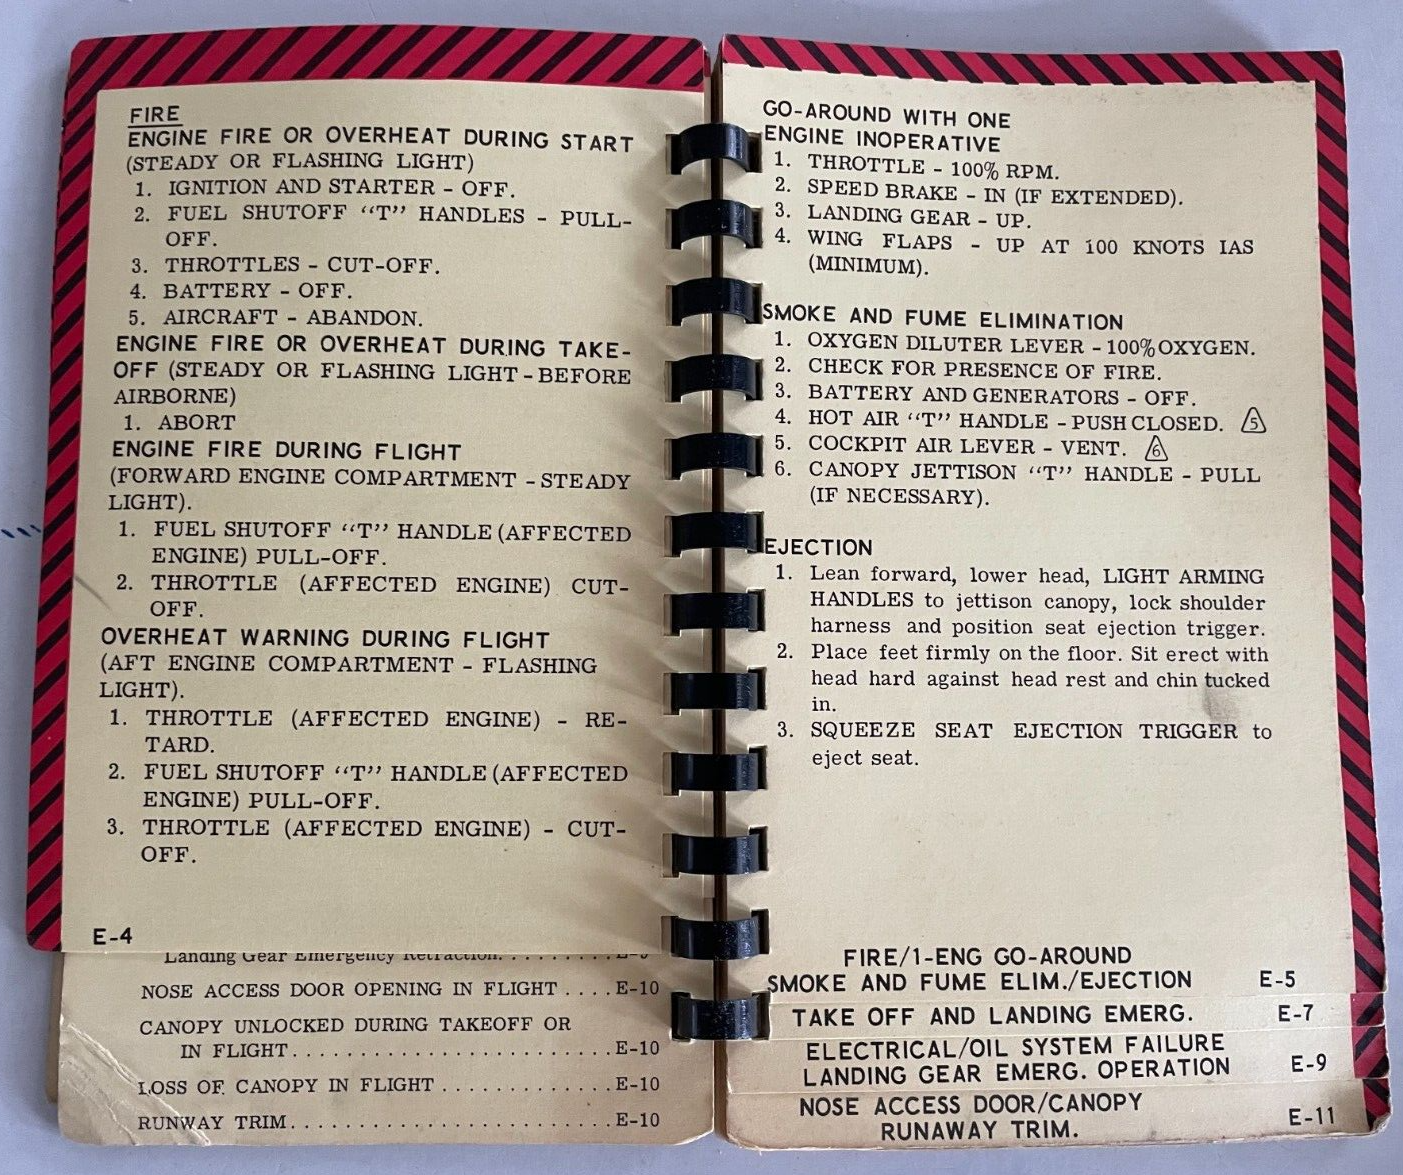 FIRE
ENGINE FIRE OR OVERHEAT DURING START
(STEADY OR FLASHING LIGHT)
1. IGNITION AND STARTER - OFF.
2. FUEL SHUTOFF "T" HANDLES - PULL-
OFF.
3. THROTTLES - CUT-OFF.
4. BATTERY - OFF.
5. AIRCRAFT - ABANDON.
ENGINE FIRE OR OVERHEAT DURING TAKE-
OFF (STEADY OR FLASHING LIGHT - BEFORE
AIRBORNE)
1. ABORT
ENGINE FIRE DURING FLIGHT
(FORWARD ENGINE COMPARTMENT - STEADY
LIGHT).
1. FUEL SHUTOFF "T" HANDLE (AFFECTED
ENGINE) PULL-OFF.
2. THROTTLE (AFFECTED ENGINE) CUT-
OFF.
OVERHEAT WARNING DURING FLIGHT
(AFT ENGINE COMPARTMENT - FLASHING
LIGHT).
1. THROTTLE (AFFECTED ENGINE) - RE-
TARD.
2. FUEL SHUTOFF "T" HANDLE (AFFECTED
ENGINE) PULL-OFF.
3. THROTTLE (AFFECTED ENGINE) - CUT-
OFF.
E-4
Landing Gear Emergency Retraction. . . . . . . . . E-9
NOSE ACCESS DOOR OPENING IN FLIGHT . . . . E-10
CANOPY UNLOCKED DURING TAKEOFF OR
IN FLIGHT. . . . . . . . . . . . . . . . . . . . . . . . . E-10
LOSS OF CANOPY IN FLIGHT . . . . . . . . . . . . . E-10
RUNWAY TRIM. . . . . . . . . . . . . . . . . . . . . . . . . E-10
GO-AROUND WITH ONE
ENGINE INOPERATIVE
1. THROTTLE - 100% RPM.
2. SPEED BRAKE - IN (IF EXTENDED).
3. LANDING GEAR - UP.
4. WING FLAPS - UP AT 100 KNOTS IAS
(MINIMUM).
SMOKE AND FUME ELIMINATION
1. OXYGEN DILUTER LEVER - 100% OXYGEN.
2. CHECK FOR PRESENCE OF FIRE.
3. BATTERY AND GENERATORS - OFF.
4. HOT AIR "T" HANDLE - PUSH CLOSED. 5
5. COCKPIT AIR LEVER - VENT. 6
6. CANOPY JETTISON "T" HANDLE - PULL
(IF NECESSARY).
EJECTION
1. Lean forward, lower head, LIGHT ARMING
HANDLES to jettison canopy, lock shoulder
harness and position seat ejection trigger.
2. Place feet firmly on the floor. Sit erect with
head hard against head rest and chin tucked
in.
3. SQUEEZE SEAT EJECTION TRIGGER to
eject seat.
FIRE/1-ENG GO-AROUND
SMOKE AND FUME ELIM./EJECTION E-5
TAKE OFF AND LANDING EMERG. E-7
ELECTRICAL/OIL SYSTEM FAILURE
LANDING GEAR EMERG. OPERATION E-9
NOSE ACCESS DOOR/CANOPY
RUNAWAY TRIM. E-11